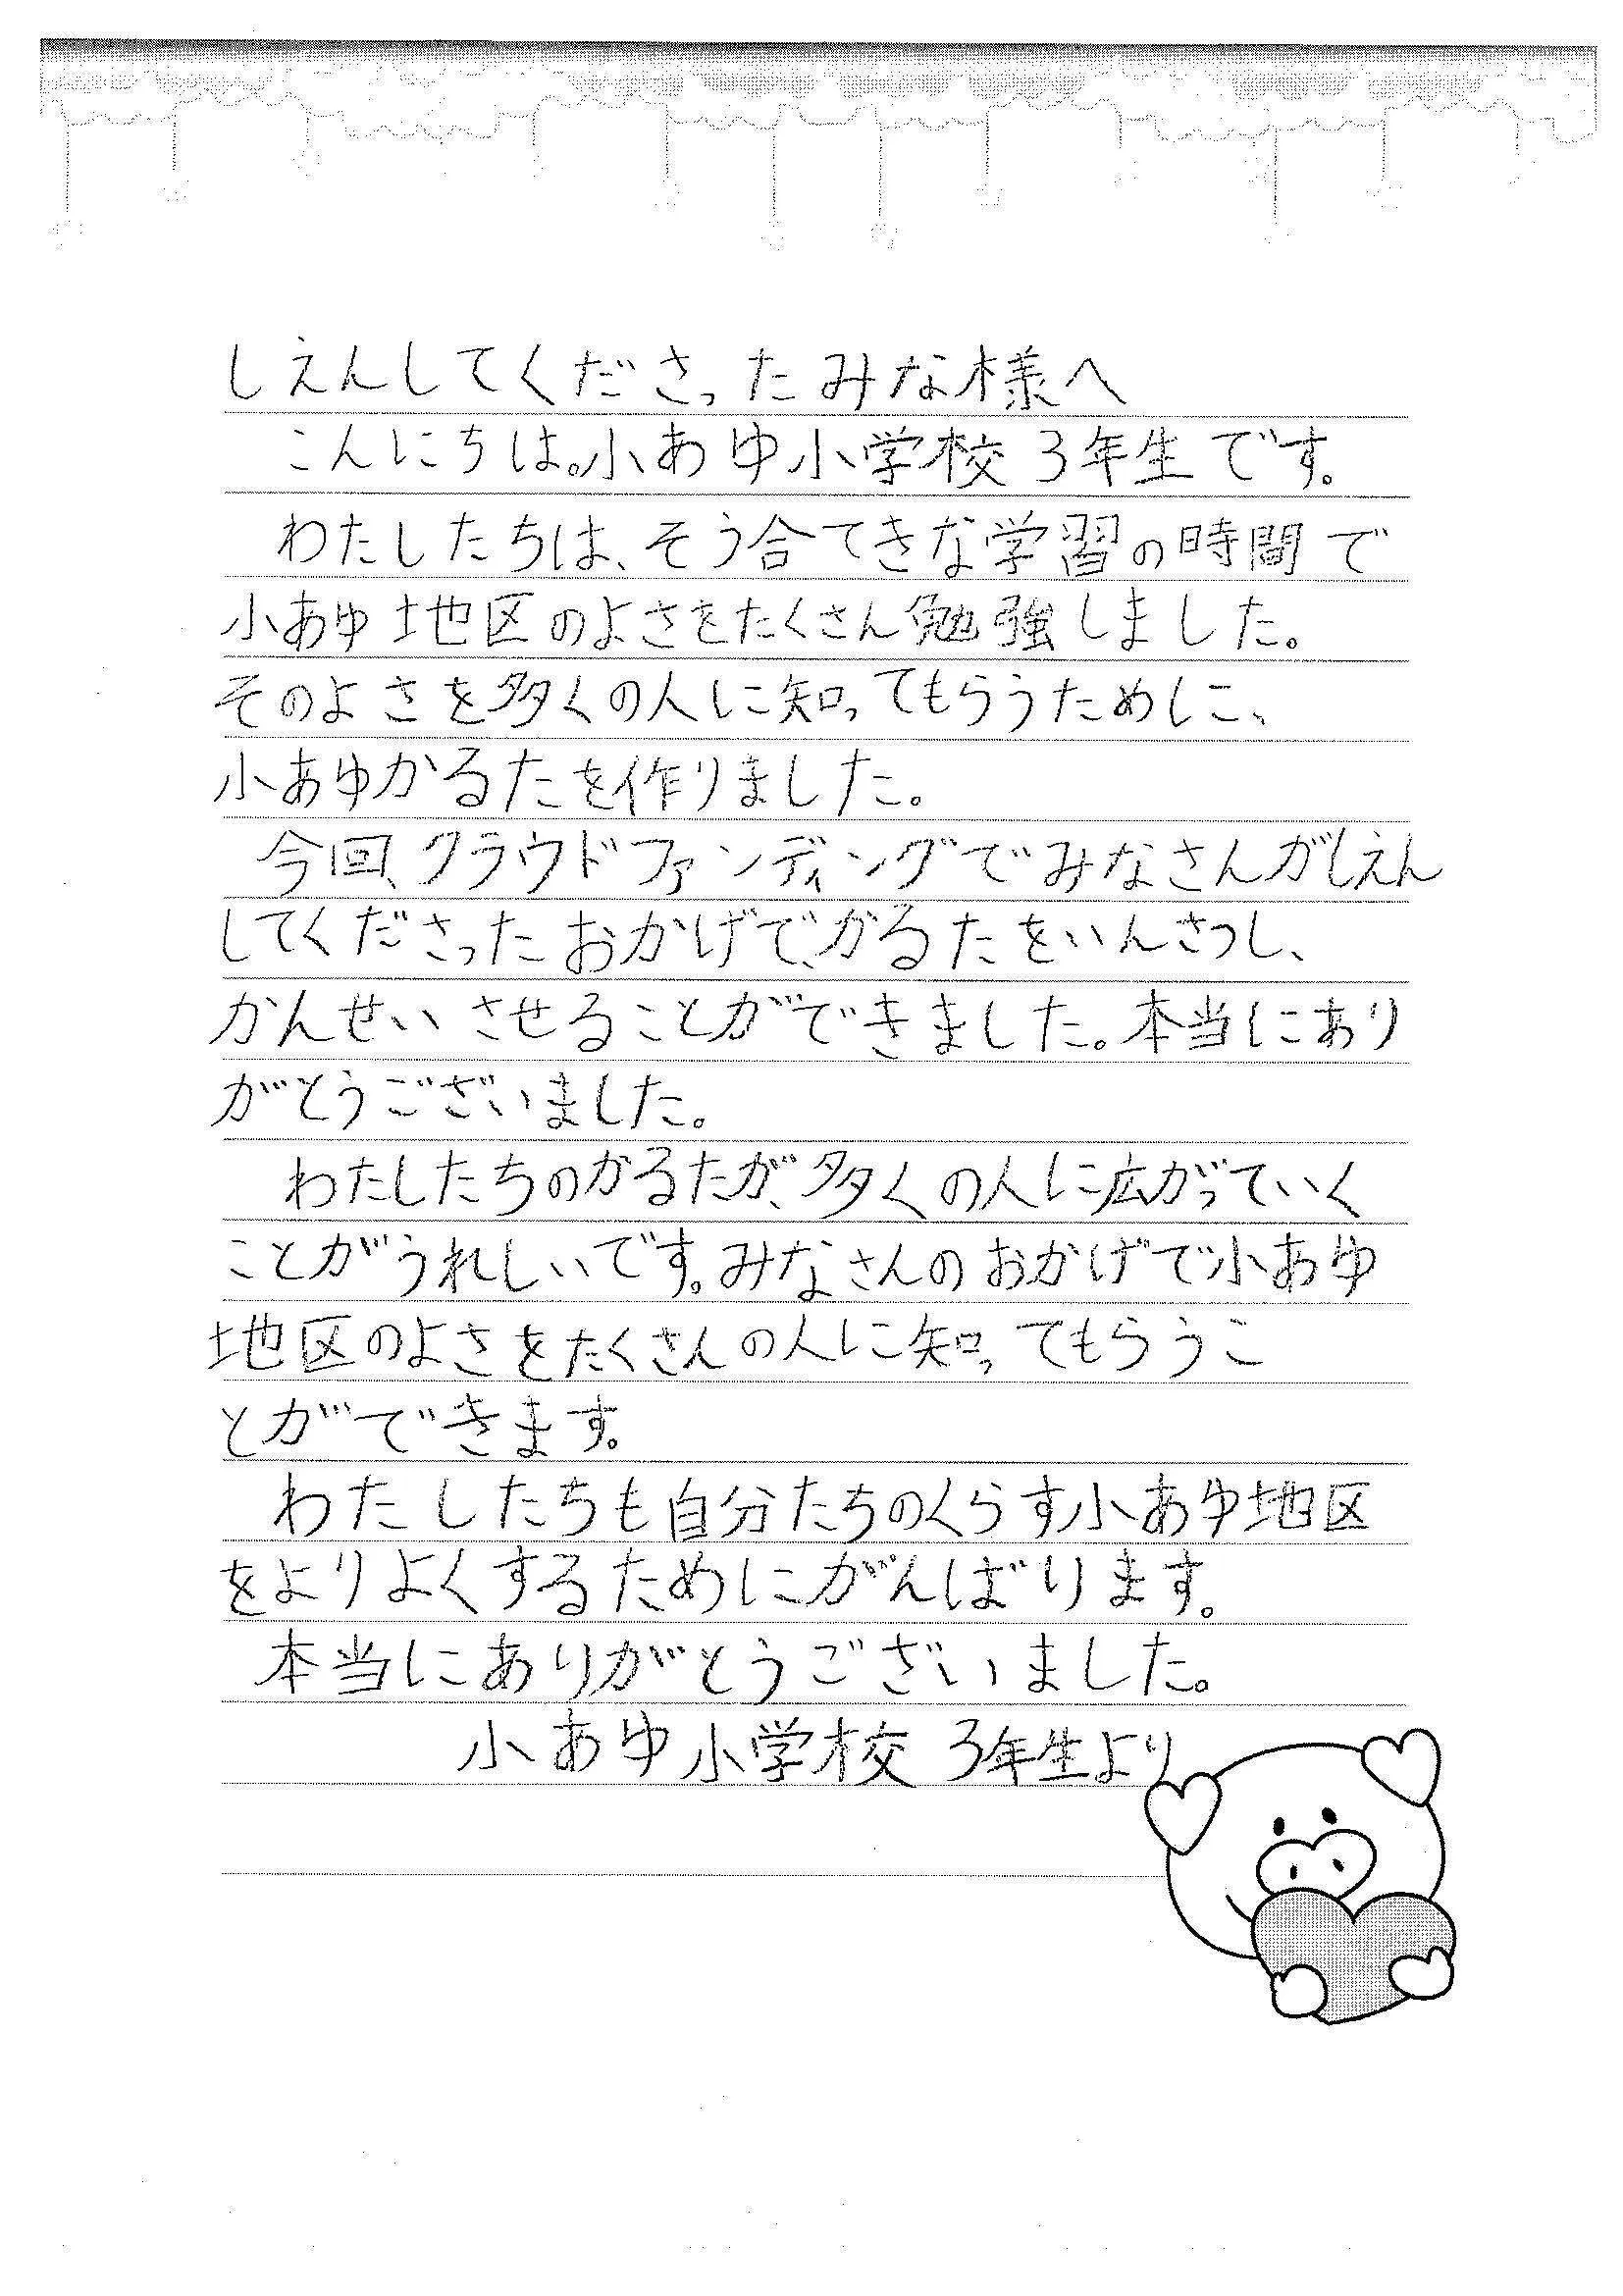 しえんしてくださったみな様へ
こんにちは。小あゆ小学校3年生です。
わたしたちは、そう合てきな学習の時間で
小あゆ地区のよさをたくさん勉強しました。
そのよさを多くの人に知ってもらうために、
小あゆかるたを作りました。
今回、クラウドファンディングでみなさんがしえん
してくださったおかげで、かるたをいんさつし、
かんせいさせることができました。本当にあり
がとうございました。
わたしたちのかるたが、多くの人に広がっていく
ことがうれしいです。みなさんのおかげで小あゆ
地区のよさをたくさんの人に知ってもらうこ
とができます。
わたしたちも自分たちのくらす小あゆ地区
をよりよくするためにがんばります。
本当にありがとうございました。
小あゆ小学校 3年生より